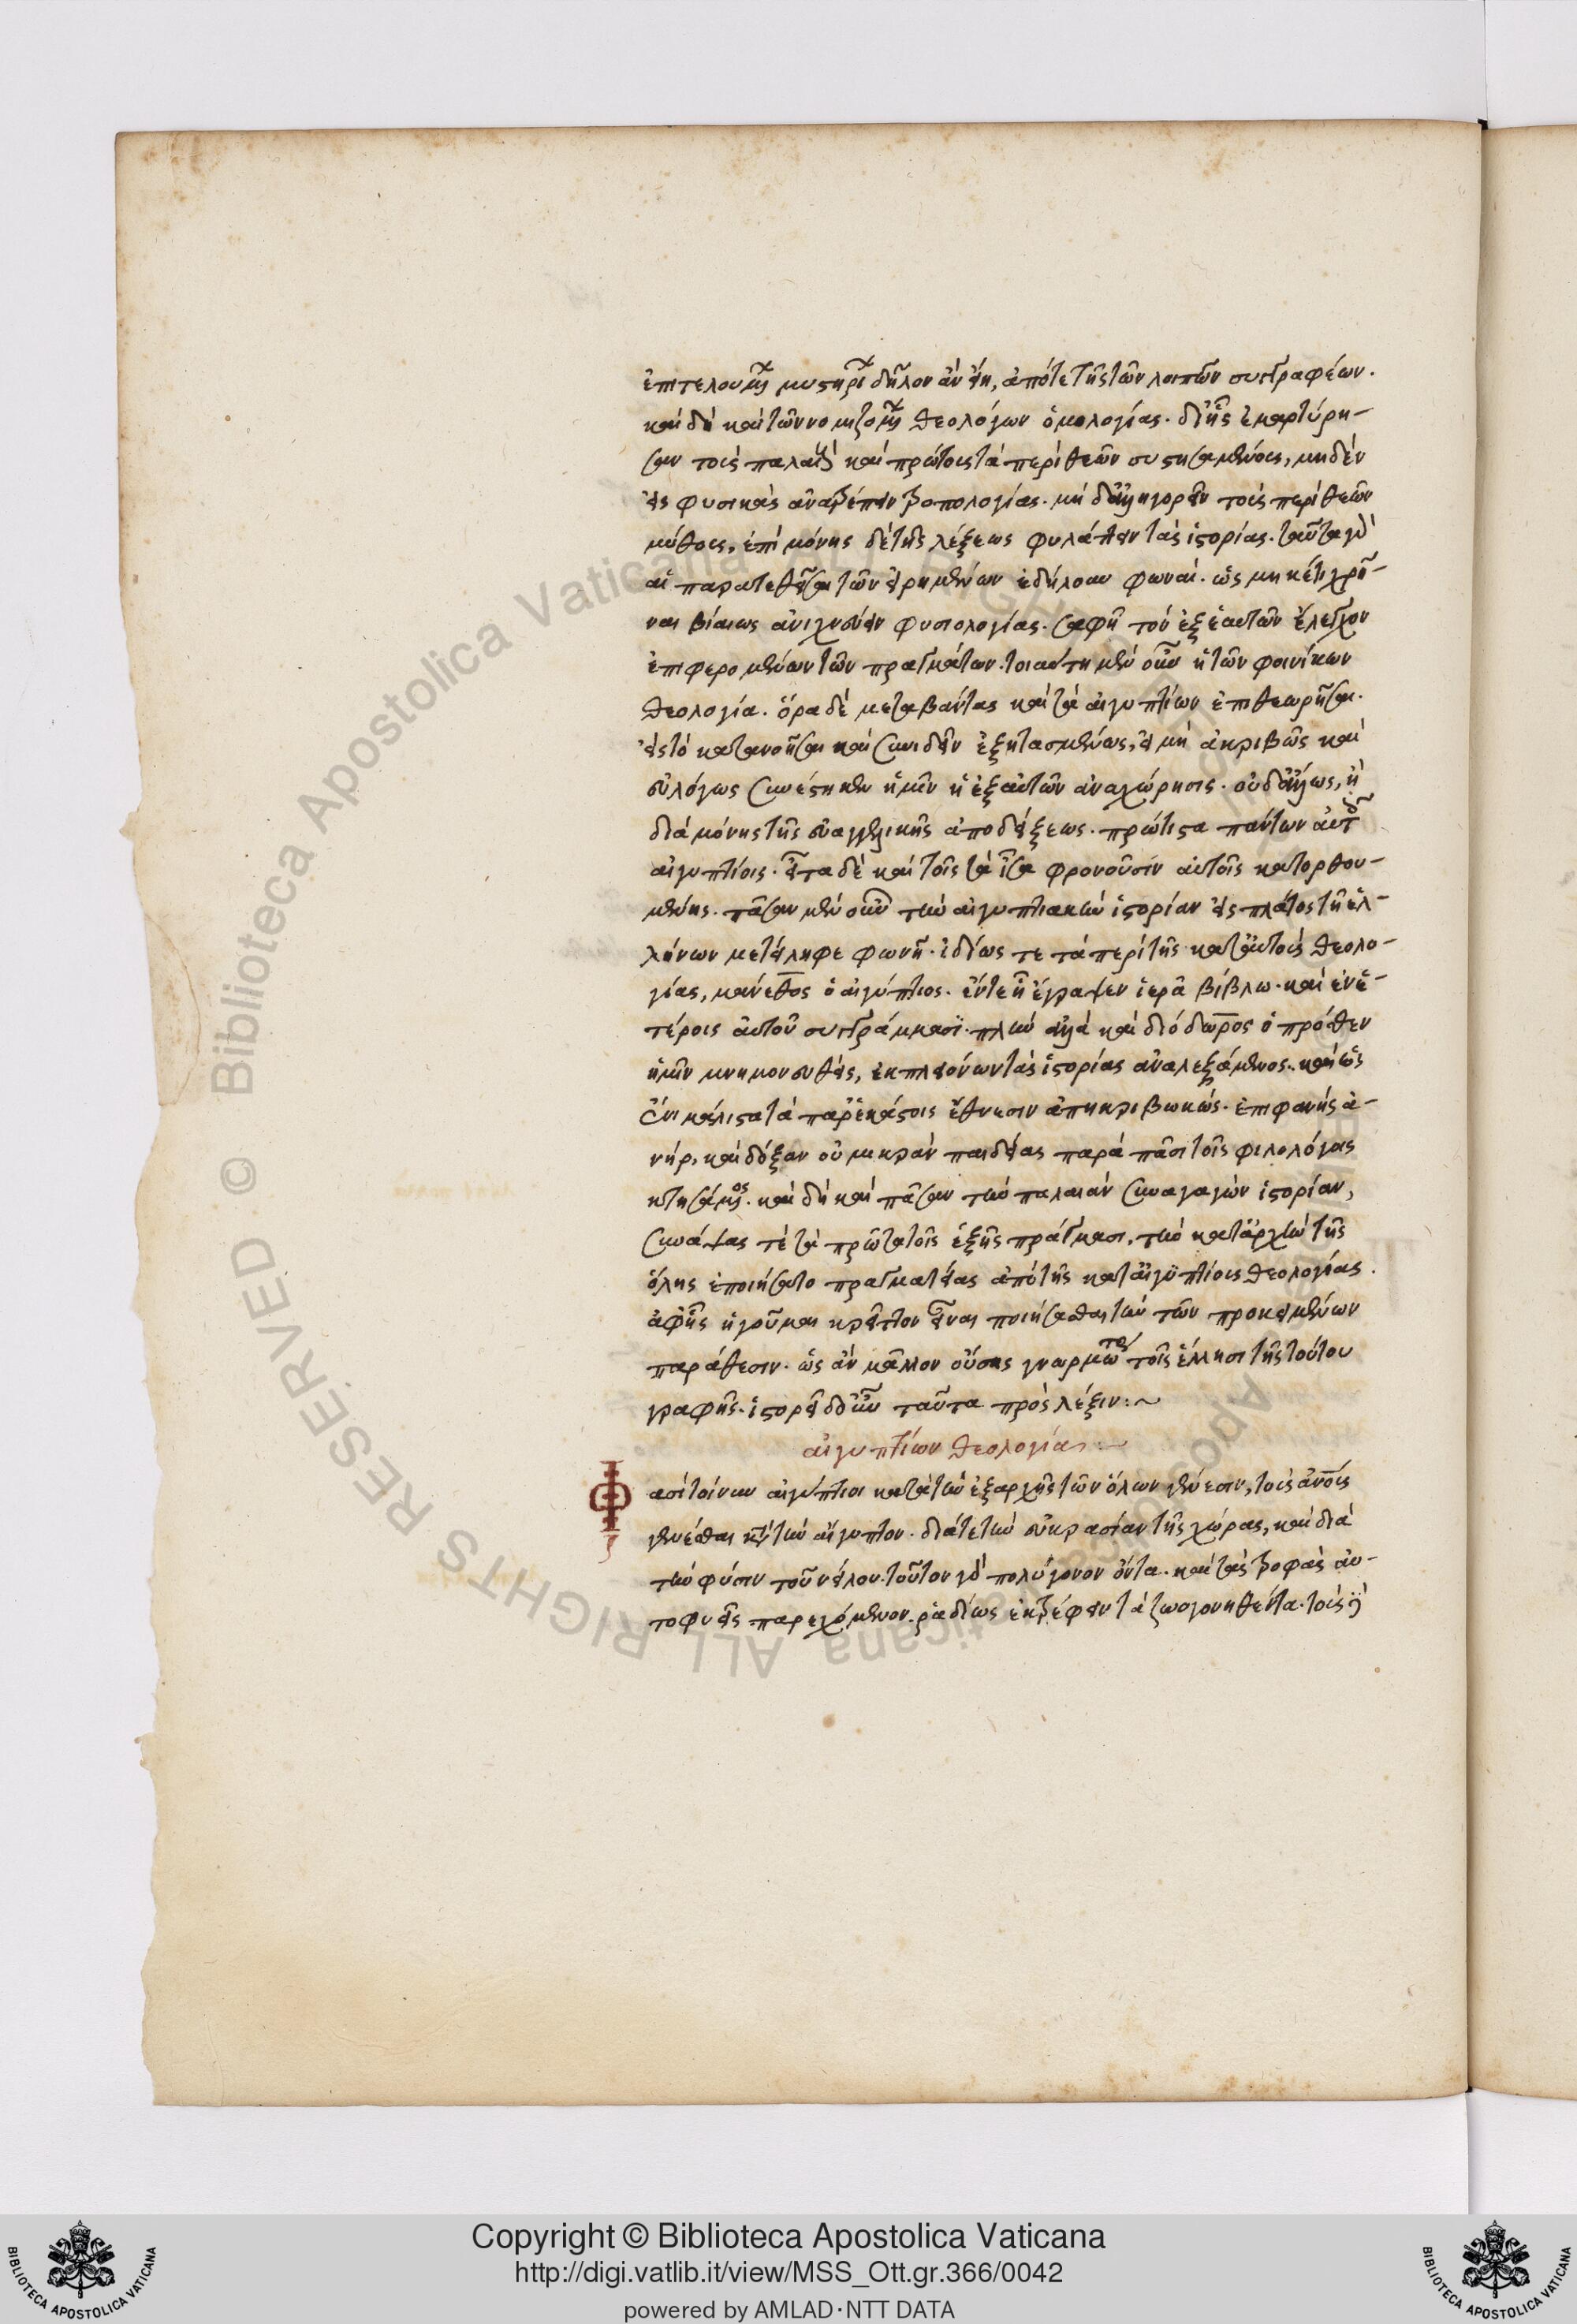 ἐπιτελουμ μυστηρι δῆλον ἂν εἴη, ἀπό τε τῆς τῶν λοιπῶν συγγραφέων.
καὶ δὴ καὶ τῶν νομιζομ θεολόγων ὁμολογίας. δι' ἧς ἐμαρτύρη-
σαν τοῖς παλαι καὶ πρώτοις τὰ περὶ θεῶν συστησαμένοις, μηδὲν
εἰς φυσικὰς ἀνατρέπειν τροπολογίας. μὴ δ' ἀλληγορεῖν τοὺς περὶ θεῶν
μύθους, ἐπὶ μόνης δὲ τῆς λέξεως φυλάττειν τὰς ἱστορίας. ταῦτα γὰρ
αἱ παρατεθεῖσαι τῶν εἰρημένων ἐδήλουν φωναί. ὡς μηκέτι χρῆ-
ναι βιαίως ἀνιχνεύειν φυσιολογίας. σαφῆ τὸν ἐξ ἑαυτῶν ἔλεγχον
ἐπιφερομένων τῶν πραγμάτων. τοιαύτη μὲν οὖν ἡ τῶν φοινίκων
θεολογία. ὅρα δὲ μεταβάντας καὶ τὰ αἰγυπτίων ἐπιθεωρῆσαι.
εἰς τὸ κατανοῆσαι καὶ συνιδεῖν ἐξητασμένως, εἰ μὴ ἀκριβῶς καὶ
εὐλόγως συνέστηκεν ἡμῖν ἡ ἐξ αὐτῶν ἀναχώρησις. οὐδ' ἄλλως, ἢ
διὰ μόνης τῆς εὐαγγελικῆς ἀποδείξεως. πρώτιστα πάντων αὐτ
αἰγυπτίοις. εἶτα δὲ καὶ τοῖς τὰ ἶσα φρονοῦσιν αὐτοῖς κατορθου-
μένης. πᾶσαν μὲν οὖν τὴν αἰγυπτιακὴν ἱστορίαν εἰς πλάτος τῇ ἑλ-
λήνων μετείληφε φωνῇ. ἰδίως τε τὰ περὶ τῆς κατ' αὐτοὺς θεολο-
γίας, μανεθος ὁ αἰγύπτιος. ἔν τε ᾗ ἔγραψεν ἱερᾷ βίβλω. καὶ ἐν ἑ-
τέροις αὐτοῦ συγγράμμασϊ. πλὴν ἀλλὰ καὶ διόδωρος ὁ πρόσθεν
ἡμῖν μνημονευθεὶς, ἐκ πλειόνων τὰς ἱστορίας ἀναλεξάμενος. καὶ ὡς
ἔνι μάλιστα τὰ παρ' ἑκάστοις ἔθνεσιν ἀπηκριβωκώς. ἐπιφανὴς ἀ-
νήρ. καὶ δόξαν οὐ μικρὰν παιδείας παρὰ πᾶσι τοῖς φιλολόγοις
κτησάμος. καὶ δὴ καὶ πᾶσαν τὴν παλαιὰν συναγαγὼν ἱστορίαν,
συνάψας τὲ τὰ πρῶτα τοῖς ἑξῆς πράγμασι. τὴν κατ' ἀρχὴν τῆς
ὅλης ἐποιήσατο πραγματείας ἀπὸ τῆς κατ' αἰγϋπτίοις θεολογίας.
ἀφ' ἧς ἡγοῦμαι κρεῖττον εἶναι ποιήσασθαι τὴν τῶν προκειμένων
παράθεσιν. ὡς ἂν μᾶλλον οὔσης γνωριμωτ τοῖς ἕλλησι τῆς τούτου
γραφῆς. ἱστορεῖ δ' οὖν ταῦτα πρὸς λέξιν:~
αἰγυπτίων θεολογίας:~
Φασὶ τοίνυν αἰγύπτιοι κατὰ τὴν ἐξαρχῆς τῶν ὅλων γένεσιν, τοὺς ἀνους
γενέσθαι κατὰ τὴν αἴγυπτον. διά τε τὴν εὐκρασίαν τῆς χώρας, καὶ διὰ
τὴν φύσιν τοῦ νείλου. τοῦτον γὰρ πολύγονον ὄντα. καὶ τὰς τροφὰς αὐ-
τοφυεῖς παρεχόμενον. ῥαδίως ἐκτρέφειν τὰ ζωογονηθέντα. τοὺς
Copyright © Biblioteca Apostolica Vaticana
http://digi.vatlib.it/view/MSS_Ott.gr.366/0042
powered by AMLAD·NTT DATA